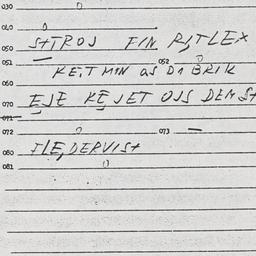 030
040
STROJ FIN RITLEX
050
051 052
KEIT MIN aS DI BRIK
060
EJE KEJET OJS DEM ST
070
071
072 073
080
FLE,DERVISt
081